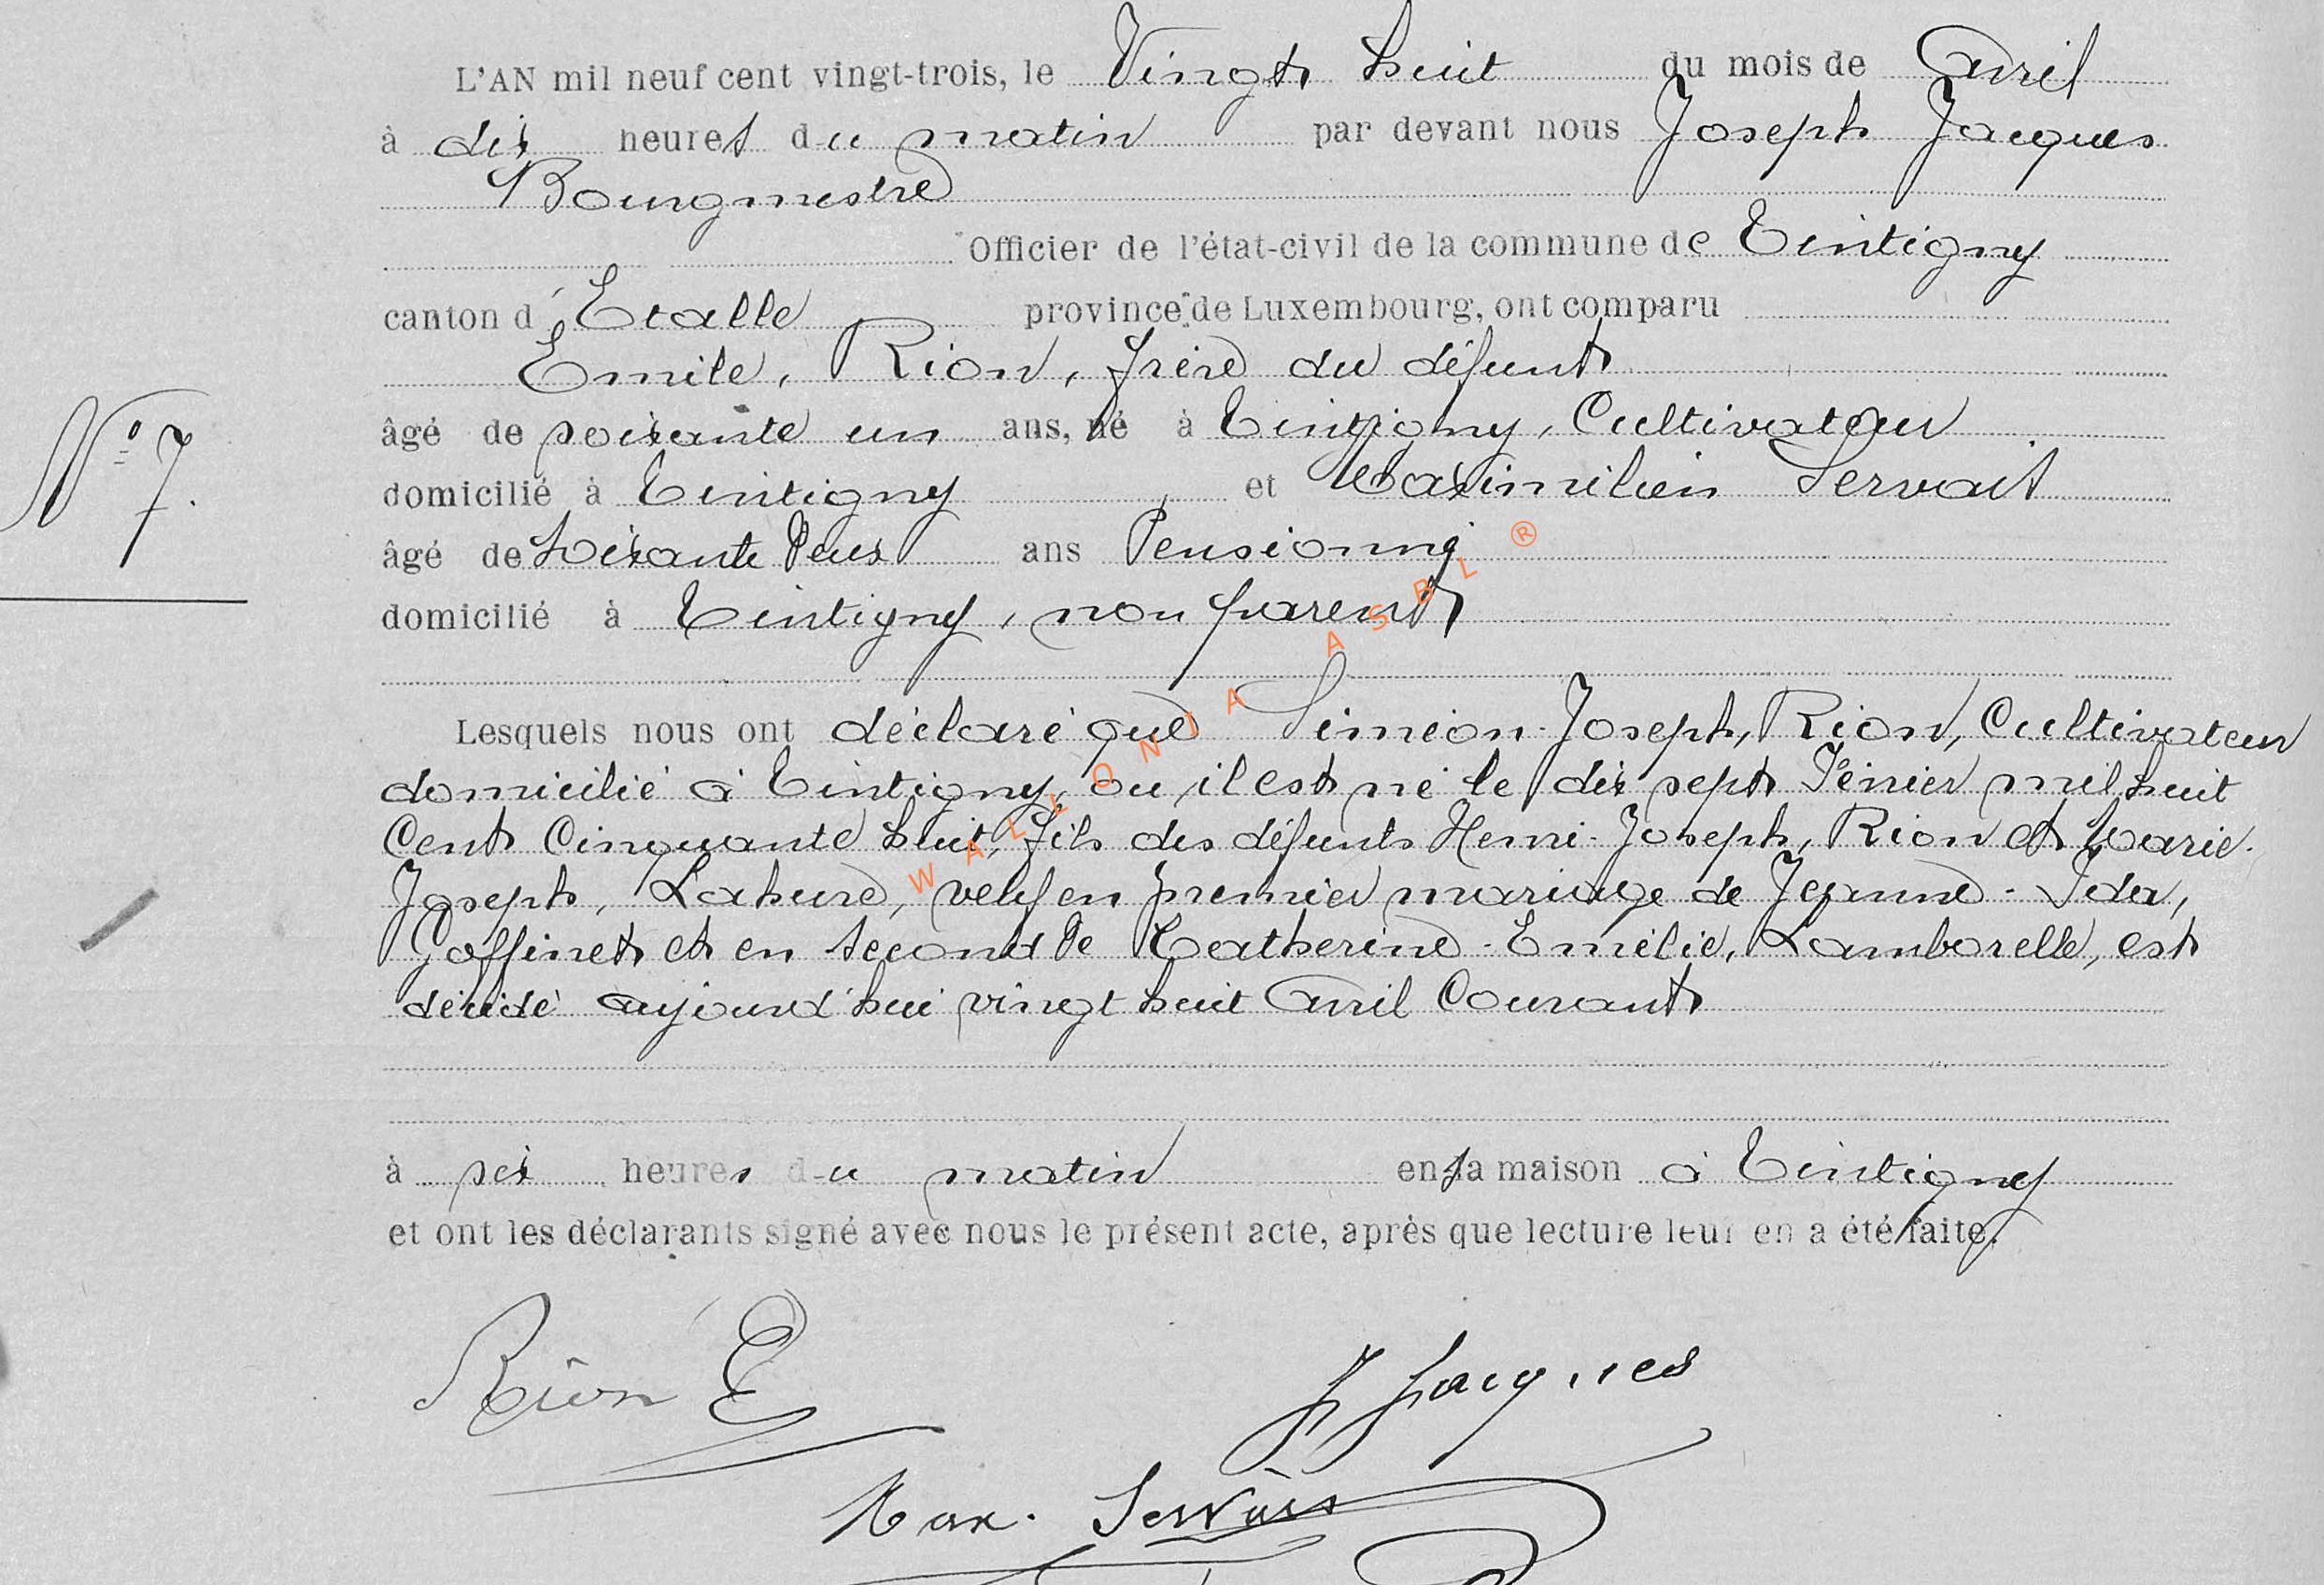 L'AN mil neuf cent vingt-trois, le Vingt huit du mois de Avril
à dix heures du matin par devant nous Joseph Jacques
Bourgmestre
Officier de l'état-civil de la commune de Tintigny
canton d'Etalle province de Luxembourg, ont comparu
Emile, Rion, frère du défunt
N° 7.
âgé de soixante un ans, né à Tintigny, Cultivateur
domicilié à Tintigny et Maximilien Servais
âgé de Soixante Deux ans Pensionné
domicilié à Tintigny, non parent
Lesquels nous ont déclaré que Siméon-Joseph, Rion, Cultivateur
domicilié à Tintigny, où il est né le dix sept Février mil huit
Cent Cinquante huit, fils des défunts Henri-Joseph, Rion et Marie-
Joseph, Lahure, veuf en premier mariage de Jeanne-Ida,
Goffinet et en second de Catherine-Emélie, Lamborelle, est
décédé aujourd'hui vingt huit Avril Courant
à six heures du matin en sa maison à Tintigny
et ont les déclarants signé avec nous le présent acte, après que lecture leur en a été faite.
Rion E
J Jacques
Max. Servais
WALLONIA ASBL ®